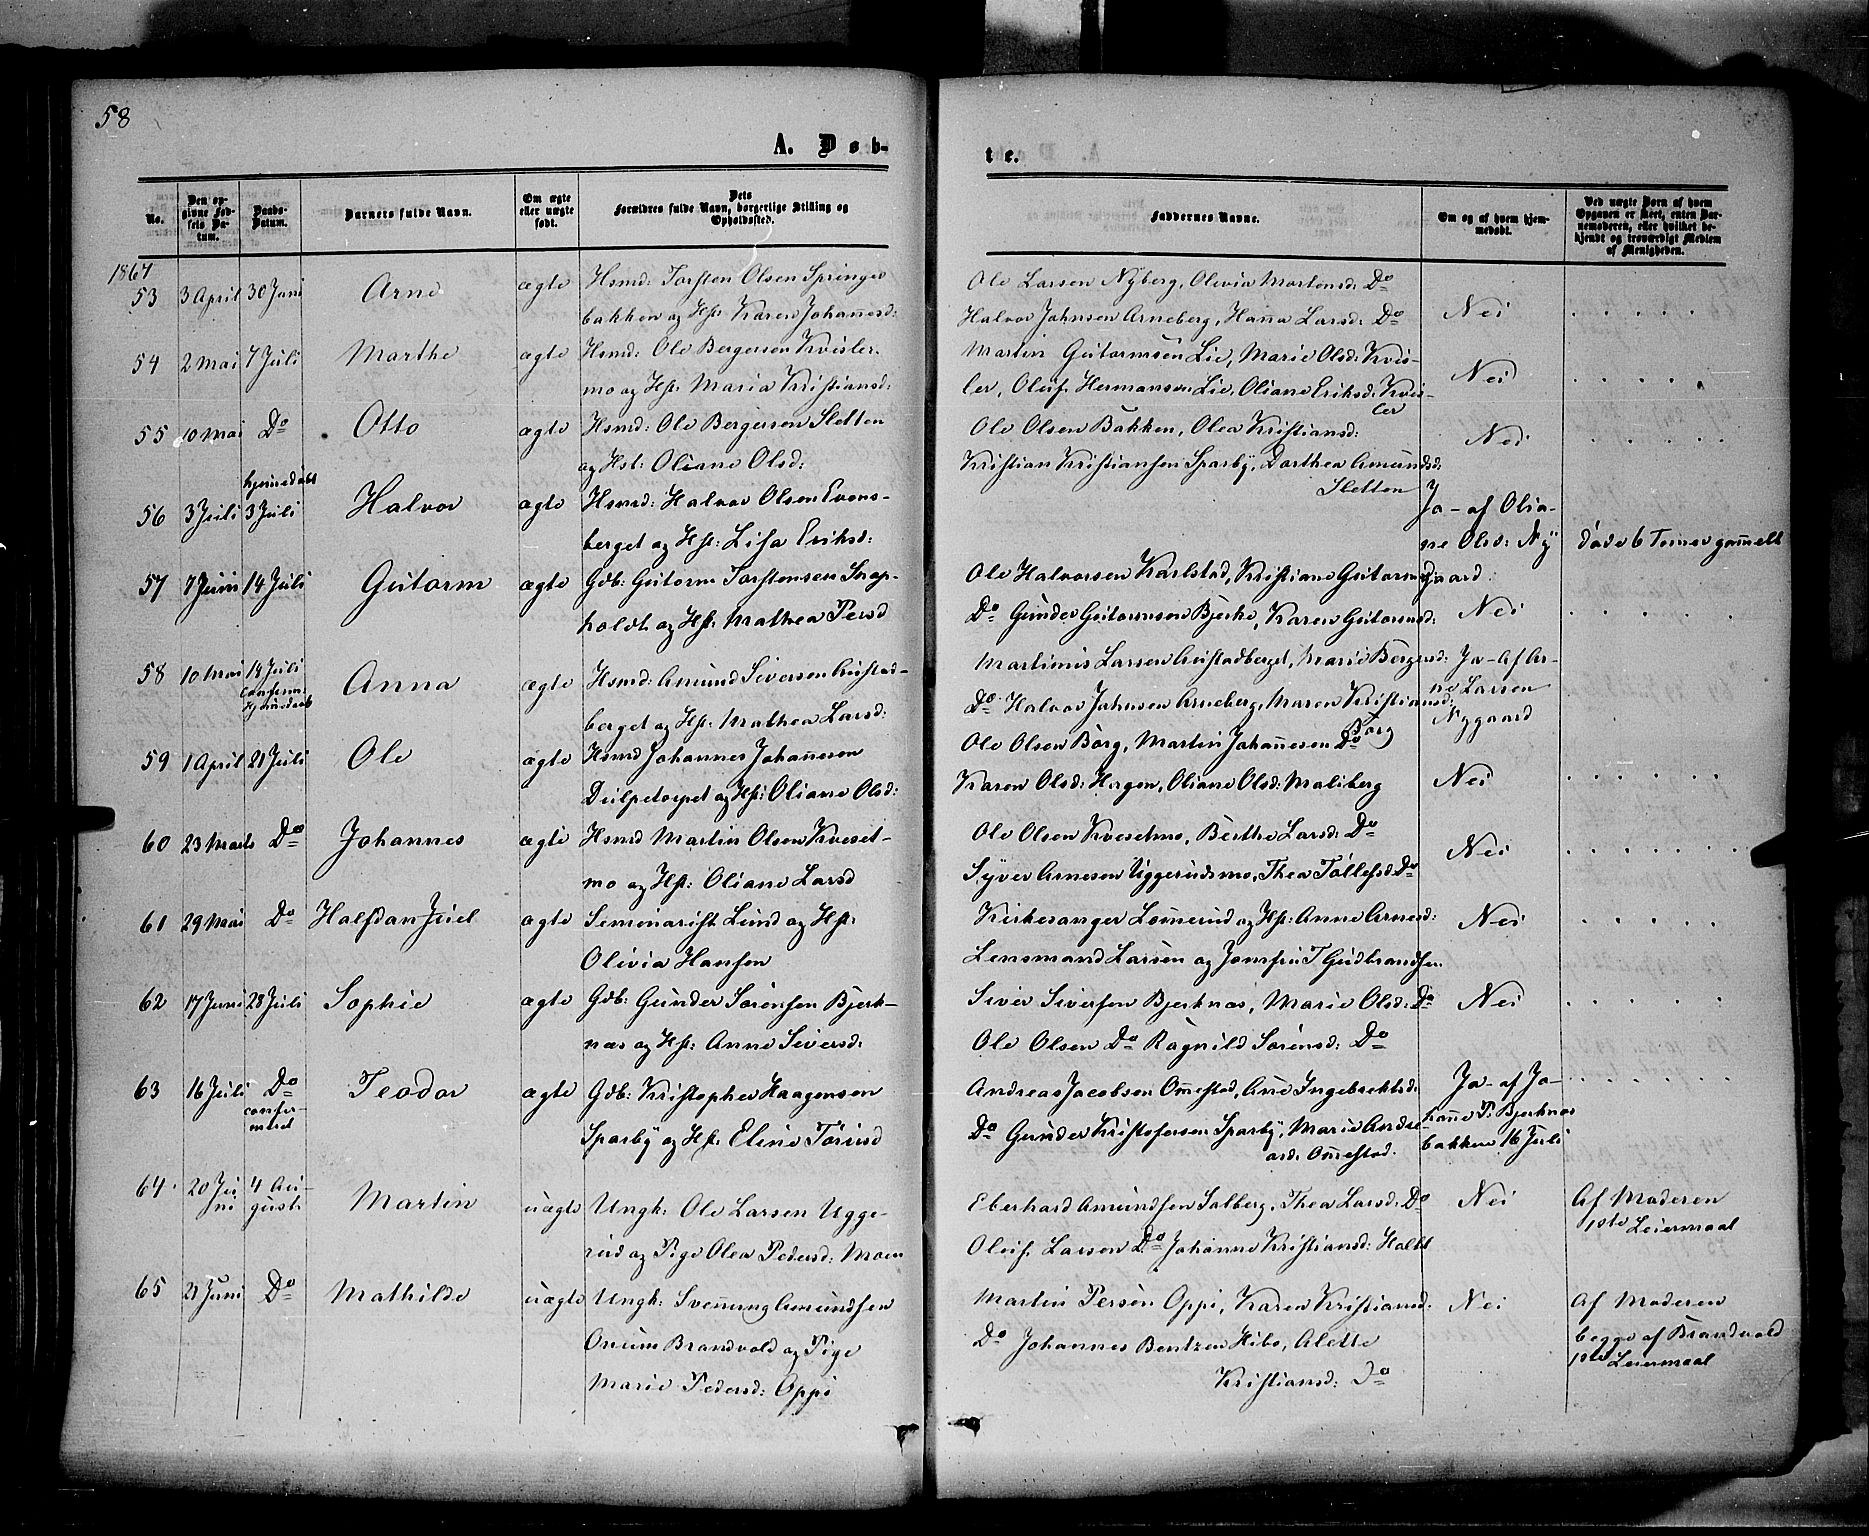 58
A. Døb-
te.
No.
Den op-
givne Fød-
sels Da-
tum.
Daabs-
Datum.
Barnets fulde Navn.
Om ægte
eller uægte
født.
Dets
Forældres fulde Navn, borgerlige Stilling og
Opholdssted.
Faddernes Navne.
Om og af hvem hjem-
medøbt.
Ved uægte Børn af hvem
Opgaven er skeet, enten Bar-
nemoderen, eller hvilket be-
kjendt og troværdigt Medlem
af Menigheden.
1867
53 3 April 30 Juni Arne ægte Hsmd: Torsten Olsen Springer
bakken og Hst: Karen Johannesd:
Ole Larsen Nyberg, Olevia Martensd: Do
Halvor Johnsen Arneberg, Hanna Larsd: Do
Nei
54 2 Mai 7 Juli Marthe ægte Hsmd: Ole Bergersen Kvisler-
mo og Hst: Maria Kristiansd:
Martin Gutormsen Lie, Marie Olsd: Kvis-
ler, Oluf Hermansen Lie, Oliane Eriksd: Kvis-
ler
Nei
55 10 Mai Do Otto ægte Hsmd: Ole Bergersen Sletten
og Hst: Oliane Olsd:
Ole Olsen Bakken, Olea Kristiansd:
Kristian Kristiansen Sparby, Dorthea Amundsd:
Sletten
Nei
56 3 Juli hjemedøbt
3 Juli Halvor ægte Hsmd: Halvor Olsen Evens-
berget og Hst: Lisa Eriksd:
Ja - af Olia-
ne Olsd: Ny
gaard
døde 6 Timer gammelt
57 7 Juni 14 Juli Gutorm ægte Gdb: Gutorm Torstensen Snap-
holdt og Hst: Mathea Persd
Ole Halvorsen Karlstad, Kristiane Gutormsd:
Do Gunder Gutormsen Bjerke, Karen Gutormsd:
Nei
58 10 Mai 14 Juli
confirm:
hjemedøbt Anna ægte Hsmd: Amund Siversen Austad-
berget og Hst: Mathea Larsd:
Martinus Larsen Austadberget, Marie Bergersd:
Do Halvor Johnsen Arneberg, Maren Kristiansd:
Borg
Ja - Af Ar-
ne Larsen
Nygaard
59 1 April 21 Juli Ole ægte Hsmd Johannes Johannesen
Dulpetorpet og Hst: Oliane Olsd:
Ole Olsen Borg, Martin Johannesen Do
Karen Olsd: Hagen, Oliane Olsd: Maliberg
Nei
60 23 Marts Do Johannes ægte Hsmd Martin Olsen Kveset-
mo og Hst: Oliane Larsd
Ole Olsen Kvesetmo, Berthe Larsd: Do
Syver Arnesen Uggerudsmo, Thea Tollefsd Do
Nei
61 29 Mai Do Halfdan Juel ægte Seminarist Lund og Hst:
Olivia Hansen
Kirkesanger Lømerud og Hst: Anne Arnesd:
Lensmand Larsen og Jomfru T Gudbrandsen
Nei
62 17 Juni 28 Juli Sophie ægte Gdb: Gunder Sørensen Bjerk-
næs og Hst: Anne Siversd:
Siver Siversen Bjerknæs, Marie Olsd: Do
Ole Olsen Do Ragnild Sørensd: Do
Nei
63 16 Juli Do
confir-
meret Teodor ægte Gdb: Kristopher Haagensen
Sparby og Hst: Eline Torusd
Andreas Jacobsen Ommestad, Ane Ingebrektsd:
Do Gunder Kristofersen Sparby, Marie Andre
asd: Ommestad.
Ja - af Jo-
hane P. Bjerknæs
bakken 16 Juli
64. 20 Ju-
ni 4 Au-
gust. Martin uægte Ungk: Ole Larsen Ugge-
rud og Pige Olea Pedersd: Moen
Eberhard Amundsen Solberg, Thea Larsd: Do
Oluf Larsen Do Johanne Kristiansd: Holt
Nei
Af Moderen
1ste Leiermaal
65 21 Juni Do Mathilde uægte Ungk: Svenung Amundsen
Onum Brandvold og Pige
Marie Pedersd: Oppi
Martin Persen Oppi, Karen Kristiansd:
Do Johannes Bentzen Hibo, Alette
Kristiansd: Do
Nei
Af Moderen
begge af Brandvold
1ste Leiermaal